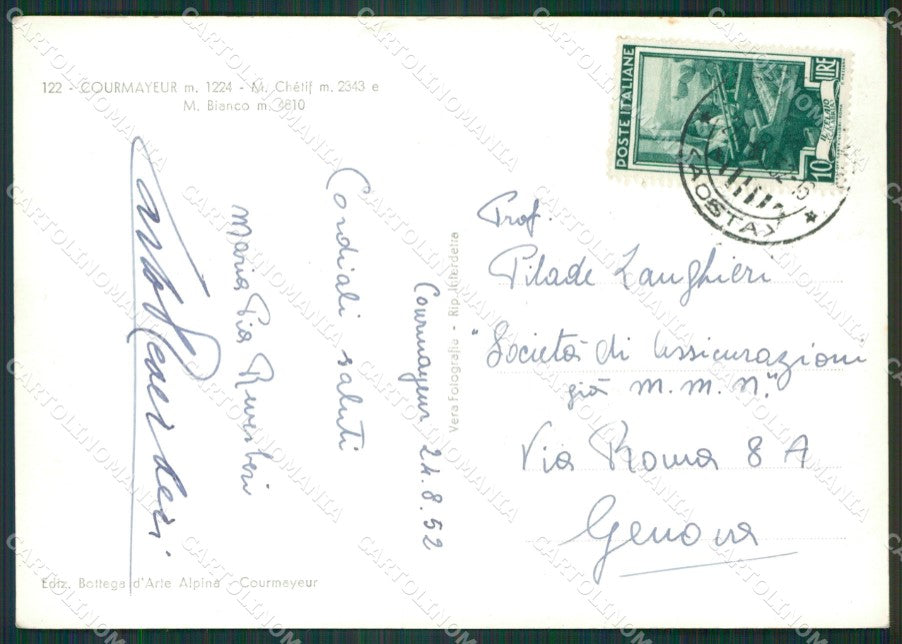 122 - COURMAYEUR m. 1224 - M. Chétif m. 2343 e
M. Bianco m. 4810
Cordiali saluti
Maria Pia
Courmayeur 24.8.52
Vera Fotografia - Rip. Interdetta
Ediz. Bottega d'Arte Alpina - Courmayeur
POSTE ITALIANE
LIRE
10
AOSTA
Prof.
Pilade Langhieri
"Società di Assicurazioni
già M.M.N."
Via Roma 8 A
Genova
CARTOLINOMANIA